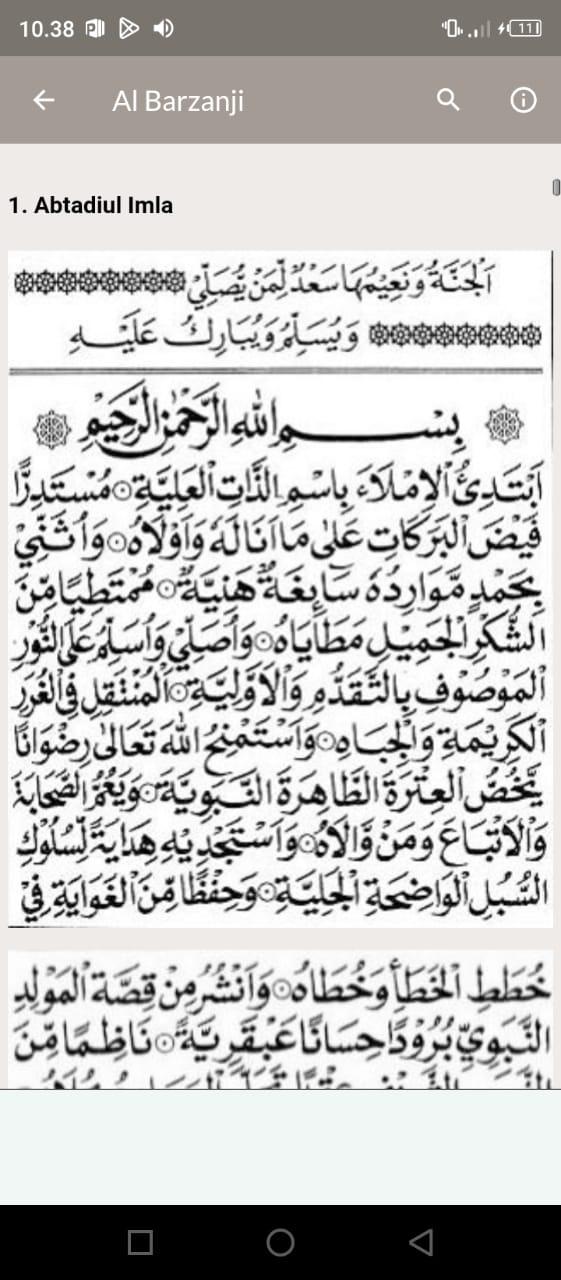 10.38
11
Al Barzanji
1. Abtadiul Imla
اَلْجَنَّةُ وَنَعِيْمُهَا سَعْدٌ لِّمَنْ يُّصَلِّيْ
وَيُسَلِّمُ وَيُبَارِكُ عَلَيْهِ
بِسْمِ اللهِ الرَّحْمٰنِ الرَّحِيْمِ
اَبْتَدِئُ الْاِمْلَاءَ بِاسْمِ الذَّاتِ الْعَلِيَّةِ ۞ مُسْتَدِرًّا
فَيْضَ الْبَرَكَاتِ عَلٰى مَا اَنَالَهُ وَاَوْلَاهُ ۞ وَاُثَنِّيْ
بِحَمْدٍ مَّوَارِدُهُ سَابِغَةٌ هَنِيَّةٌ ۞ مُمْتَطِيًا مِّنَ
الشُّكْرِ الْجَمِيْلِ مَطَايَاهُ ۞ وَاُصَلِّيْ وَاُسَلِّمُ عَلَى النُّوْرِ
الْمَوْصُوْفِ بِالتَّقَدُّمِ وَالْاَوَّلِيَّةِ ۞ الْمُنْتَقِلِ فِي الْغُرَرِ
الْكَرِيْمَةِ وَالْجِبَاهِ ۞ وَاَسْتَمْنِحُ اللهَ تَعَالٰى رِضْوَانًا
يَّخُصُّ الْعِتْرَةَ الطَّاهِرَةَ النَّبَوِيَّةَ ۞ وَيَعُمُّ الصَّحَابَةَ
وَالْاَتْبَاعَ وَمَنْ وَّالَاهُ ۞ وَاَسْتَجْدِيْهِ هِدَايَةً لِّسُلُوْكِ
السُّبُلِ الْوَاضِحَةِ الْجَلِيَّةِ ۞ وَحِفْظًا مِّنَ الْغَوَايَةِ فِيْ
خُطَطِ الْخَطَأِ وَخُطَاهُ ۞ وَاَنْشُرُ مِنْ قِصَّةِ الْمَوْلِدِ
النَّبَوِيِّ بُرُوْدًا حِسَانًا عَبْقَرِيَّةً ۞ نَاظِمًا مِّنَ